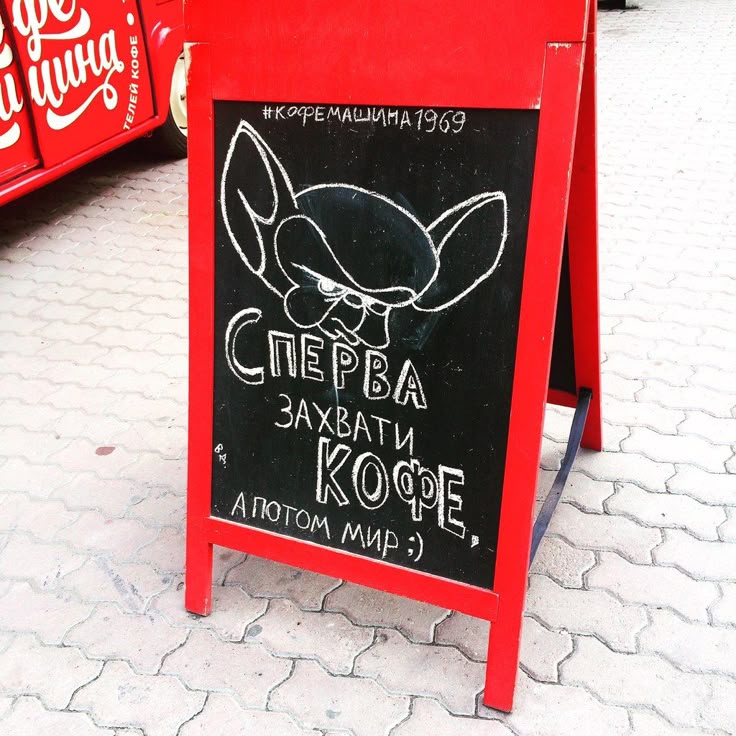 кофе
машина
ТЕЛЕЙ КОФЕ
#КОФЕМАШИНА1969
СПЕРВА
ЗАХВАТИ
КОФЕ,
А ПОТОМ МИР ;)